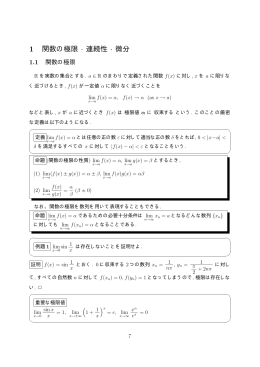 1 関数の極限・連続性・微分
1.1 関数の極限
ℝを実数の集合とする．a ∈ ℝのまわりで定義された関数 f(x) に対し，x を a に限りな
く近づけるとき，f(x) が一定値 α に限りなく近づくことを
lim_{x→a} f(x) = α, f(x) → α (as x → a)
などと表し，x が a に近づくとき f(x) は 極限値 α に 収束する という．このことの厳密
な定義は，次で与えられる．
定義 lim_{x→a} f(x) = α とは任意の正の数 ε に対して適当な正の数 δ をとれば，0 < |x−a| <
δ を満足するすべての x に対して |f(x) − α| < ε となることをいう．
命題 (関数の極限の性質) lim_{x→a} f(x) = α, lim_{x→a} g(x) = β とする．
(1) lim_{x→a} (f(x) ± g(x)) = α ± β, lim_{x→a} f(x)g(x) = αβ
(2) lim_{x→a} f(x)/g(x) = α/β (β ≠ 0)
なお，関数の極限を数列を用いて表現することもできる．
命題 lim_{x→a} f(x) = α であるための必要十分条件は lim_{n→∞} x_n = a となるどんな数列 {x_n}
に対しても lim_{n→∞} f(x_n) = α となることである．
例題 1 lim_{x→0} sin 1/x は存在しないことを証明せよ．
証明 f(x) = sin 1/x とおく．0 に収束する 2 つの数列 x_n = 1/(nπ), y_n = 1/(π/2 + 2nπ) に対し
て，すべての自然数 n に対して f(x_n) = 0, f(y_n) = 1 となってしまうので，極限は存在しな
い．□
重要な極限値
lim_{x→0} sin x/x = 1, lim_{x→∞} (1 + 1/x)^x = e, lim_{x→∞} x^n/e^x = 0
7